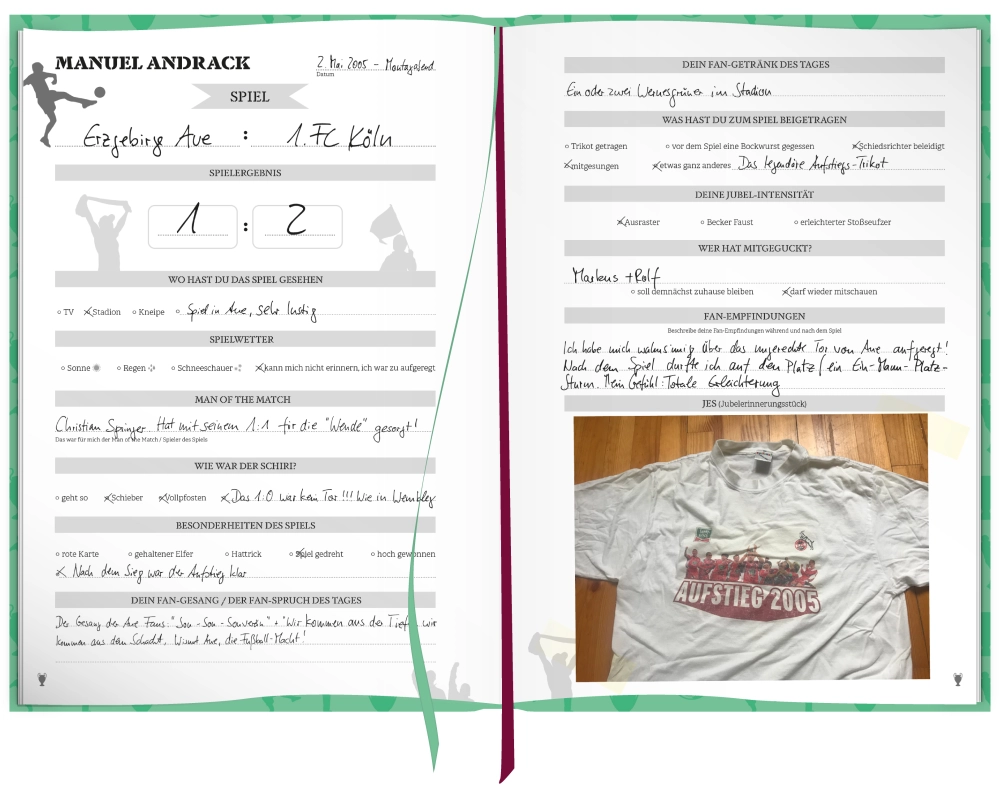 MANUEL ANDRACK
2. Mai 2005 - Montagabend
Datum
SPIEL
Erzgebirge Aue : 1. FC Köln
SPIELERGEBNIS
1 : 2
WO HAST DU DAS SPIEL GESEHEN
TV Stadion Kneipe Spiel in Aue, sehr lustig
SPIELWETTER
Sonne Regen Schneeschauer kann mich nicht erinnern, ich war zu aufgeregt
MAN OF THE MATCH
Christian Springer Hat mit seinem 1:1 für die "Wende" gesorgt!
Das war für mich der Man of the Match / Spieler des Spiels
WIE WAR DER SCHIRI?
geht so Schieber Vollpfosten Das 1:0 war kein Tor!!! Wie in Wembley
BESONDERHEITEN DES SPIELS
rote Karte gehaltener Elfer Hattrick Spiel gedreht hoch gewonnen
Nach dem Sieg war der Aufstieg klar
DEIN FAN-GESANG / DER FAN-SPRUCH DES TAGES
Der Gesang der Aue Fans: "Sou-Sou-Souverän" + "Wir kommen aus der Tiefe, wir
kommen aus dem Schacht, Wismut Aue, die Fußball-Macht!
DEIN FAN-GETRÄNK DES TAGES
Ein oder zwei Wernesgrüner im Stadion
WAS HAST DU ZUM SPIEL BEIGETRAGEN
Trikot getragen vor dem Spiel eine Bockwurst gegessen Schiedsrichter beleidigt
mitgesungen etwas ganz anderes Das legendäre Aufstiegs-Trikot
DEINE JUBEL-INTENSITÄT
Ausraster Becker Faust erleichterter Stoßseufzer
WER HAT MITGEGUCKT?
Markus + Ralf
soll demnächst zuhause bleiben darf wieder mitschauen
FAN-EMPFINDUNGEN
Beschreibe deine Fan-Empfindungen während und nach dem Spiel
Ich habe mich wahnsinnig über das ungerechte Tor von Aue aufgeregt!
Nach dem Spiel durfte ich auf den Platz (ein Ein-Mann-Platz-
Sturm. Mein Gefühl: Totale Erleichterung
JES (Jubelerinnerungsstück)
AUFSTIEG 2005